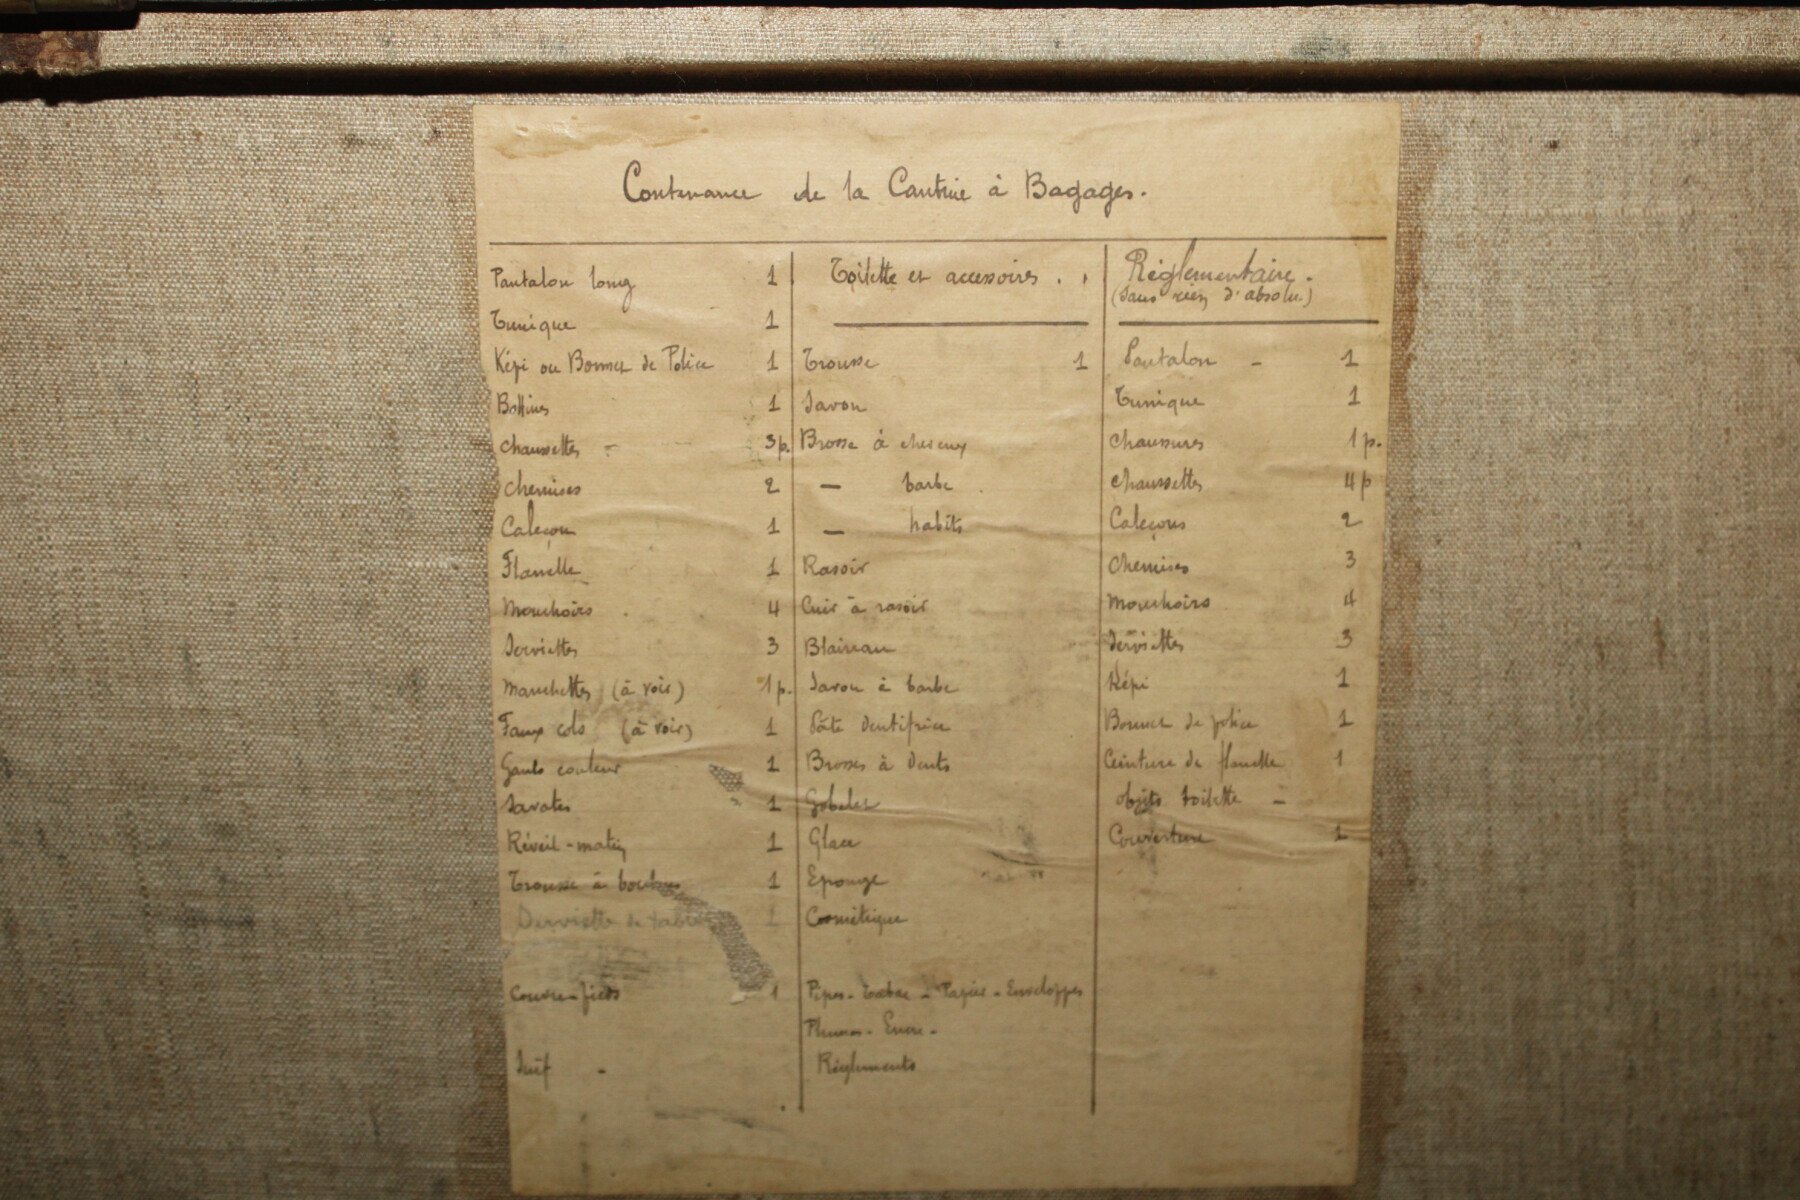 Contenance de la Cantine à Bagages.
Pantalon long 1
Tunique 1
Képi ou Bonnet de Police 1
Bottines 1
Chaussettes - 3 p.
Chemises 2
Caleçon 1
Flanelle 1
Mouchoirs 4
Serviettes 3
Manchettes (à voir) 1 p.
Faux cols (à voir) 1
Gants couleur 1
Savates 1
Réveil-matin 1
Trousse à 1
Serviette de table 1
Couvre-pieds 1
Suif -
Toilette et accessoires . .
Trousse 1
Savon
Brosse à cheveux
— barbe
— habits
Rasoir
Cuir à rasoir
Blaireau
Savon à barbe
Pâte dentifrice
Brosses à dents
Gobelet
Glace
Eponge
Cosmétique
Pipes - Tabac - Papier - Enveloppes
Plumes - Encre -
Règlements
Réglementaire.
(sans rien d'absolu.)
Pantalon - 1
Tunique 1
Chaussures 1 p.
Chaussettes 4 p
Caleçons 2
Chemises 3
Mouchoirs 4
Serviettes 3
Képi 1
Bonnet de police 1
Ceinture de flanelle 1
objets toilette -
Couverture 1